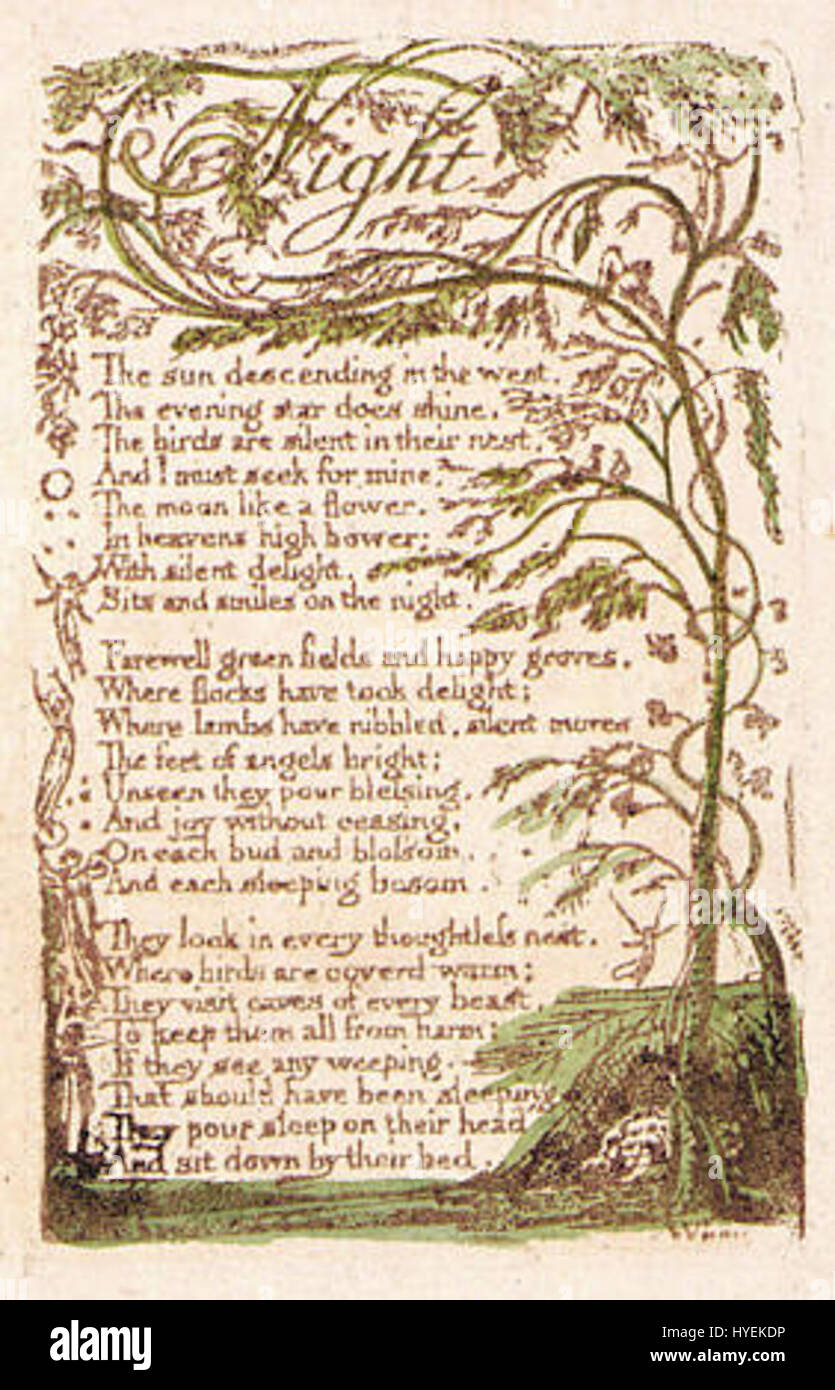 Night
The sun descending in the west.
The evening star does shine.
The birds are silent in their nest.
And I must seek for mine.
The moon like a flower.
In heavens high bower;
With silent delight.
Sits and smiles on the night.
Farewell green fields and happy groves,
Where flocks have took delight;
Where lambs have nibbled, silent moves
The feet of angels bright;
Unseen they pour bleſsing,
And joy without ceasing,
On each bud and bloſsom,
And each sleeping bosom.
They look in every thoughtleſs nest.
Where birds are coverd warm;
They visit caves of every beast,
To keep them all from harm;
If they see any weeping.
That should have been sleeping
They pour sleep on their head
And sit down by their bed.
alamy
alamy stock photo
HYEKDP
www.alamy.com